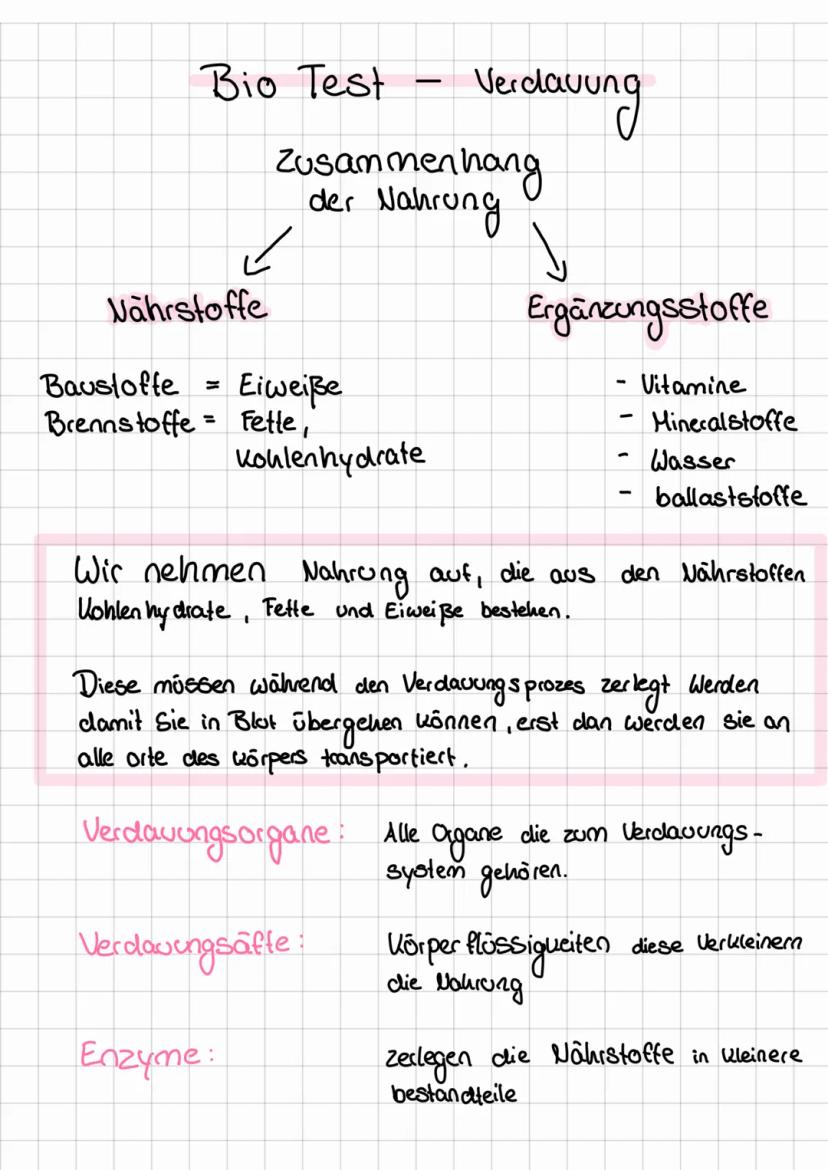 Bio Test – Verdauung
Zusammenhang
der Nahrung
Nährstoffe
Ergänzungsstoffe
Baustoffe = Eiweiße
Brennstoffe = Fette,
Kohlenhydrate
- Vitamine
- Mineralstoffe
- Wasser
- ballaststoffe
Wir nehmen Nahrung auf, die aus den Nährstoffen
Kohlenhydrate, Fette und Eiweiße bestehen.
Diese müssen während den Verdauungsprozes zerlegt werden
damit Sie in Blut übergehen können, erst dan werden sie an
alle orte des körpers transportiert.
Verdauungsorgane: Alle Organe die zum Verdauungs-
system gehören.
Verdauungsäfte: Körperflüssigkeiten diese Verkleinern
die Nahrung
Enzyme: zerlegen die Nährstoffe in kleinere
bestandteile